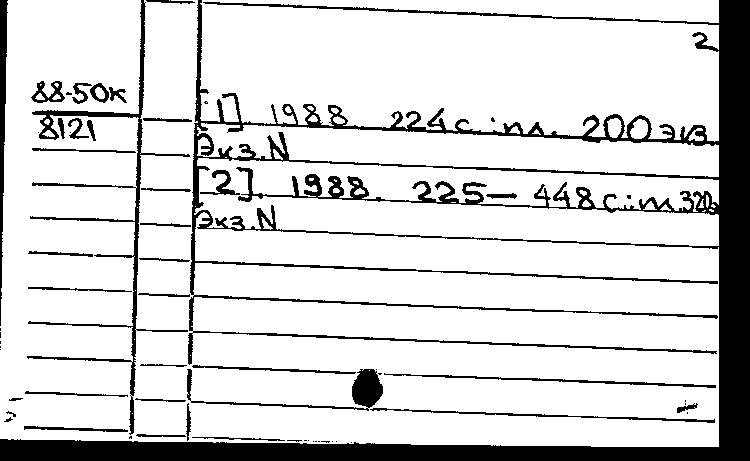 2
88-50к
8121
[1] 1988 224 с. : ил. 200 экз.
Экз. N
[2]. 1988. 225 — 448 с. : ил. 320э
Экз. N